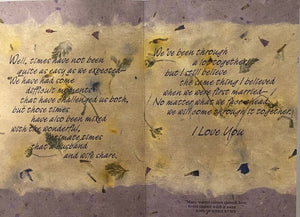 Well, times have not been
quite as easy as we expected—
We have had some
difficult moments
that have challenged us both,
but those times
have also been mixed
with the wonderful,
intimate times
that a husband
and wife share.
We've been through
a lot together,
but I still believe
the same things I believed
when we were first married—
No matter what we face ahead,
we will come through it together.
I Love You
"Many waters cannot quench love